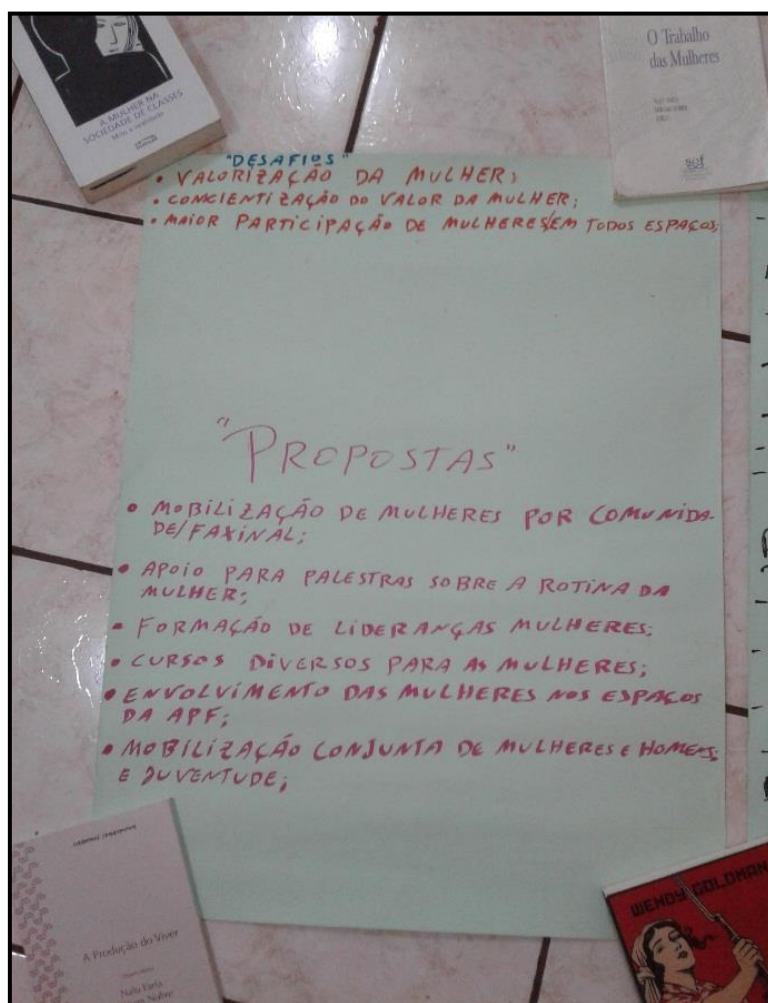 A MULHER NA
SOCIEDADE DE CLASSES
Mito e realidade
O Trabalho
das Mulheres
sof
"DESAFIOS"
• VALORIZAÇÃO DA MULHER;
• CONCIENTIZAÇÃO DO VALOR DA MULHER;
• MAIOR PARTICIPAÇÃO DE MULHERES/EM TODOS ESPAÇOS;
"PROPOSTAS"
• MOBILIZAÇÃO DE MULHERES POR COMUNIDA-
DE/FAXINAL;
• APOIO PARA PALESTRAS SOBRE A ROTINA DA
MULHER;
• FORMAÇÃO DE LIDERANÇAS MULHERES;
• CURSOS DIVERSOS PARA AS MULHERES;
• ENVOLVIMENTO DAS MULHERES NOS ESPAÇOS
DA APF;
• MOBILIZAÇÃO CONJUNTA DE MULHERES E HOMENS
E JUVENTUDE;
A Produção do Viver
Nalu Faria
Nobre
WENDY GOLDMAN